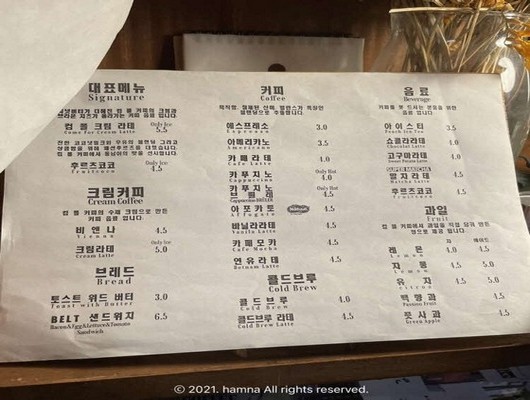 대표메뉴
Signature
컴 폴 크림 라떼
Come for Cream Latte
Only Ice
5.5
후르츠코코
Only Ice
4.5
크림커피
Cream Coffee
비 엔 나
Vienna
4.5
크림라떼
Cream Latte
Only Ice
5.0
브레드
Bread
토스트 위드 버터
Toast with Butter
3.0
BELT 샌드위치
Bacon&Egg&Lettuce&Tomato
Sandwich
6.5
커피
Coffee
에스프레소
Espresso
3.0
아메리카노
Americano
3.5
카페라떼
Cafe Latte
4.0
카푸치노
Cappuccino
Only Hot
4.0
카푸치노
브륄레
Only Hot
4.5
아포카토
Affogato
4.5
바닐라라떼
Vanilla Latte
4.5
카페모카
Cafe Mocha
4.5
연유라떼
4.5
콜드브루
Cold Brew
콜드브루
Cold Brew
4.0
콜드브루 라떼
Cold Brew Latte
4.5
음료
Beverage
아이스티
Peach Ice Tea
3.5
쇼콜라라떼
Chocolat Latte
4.0
고구마라떼
Sweet Potato Latte
4.0
SUPER MATCHA
말차라떼
Matcha Latte
4.5
후르츠코코
4.5
과일
Fruit
차
에이드
레몬
4.0
4.5
자몽
4.5
5.0
유자
4.5
5.0
백향과
Passion Fruit
4.5
풋사과
Green Apple
4.5
© 2021. hamna All rights reserved.